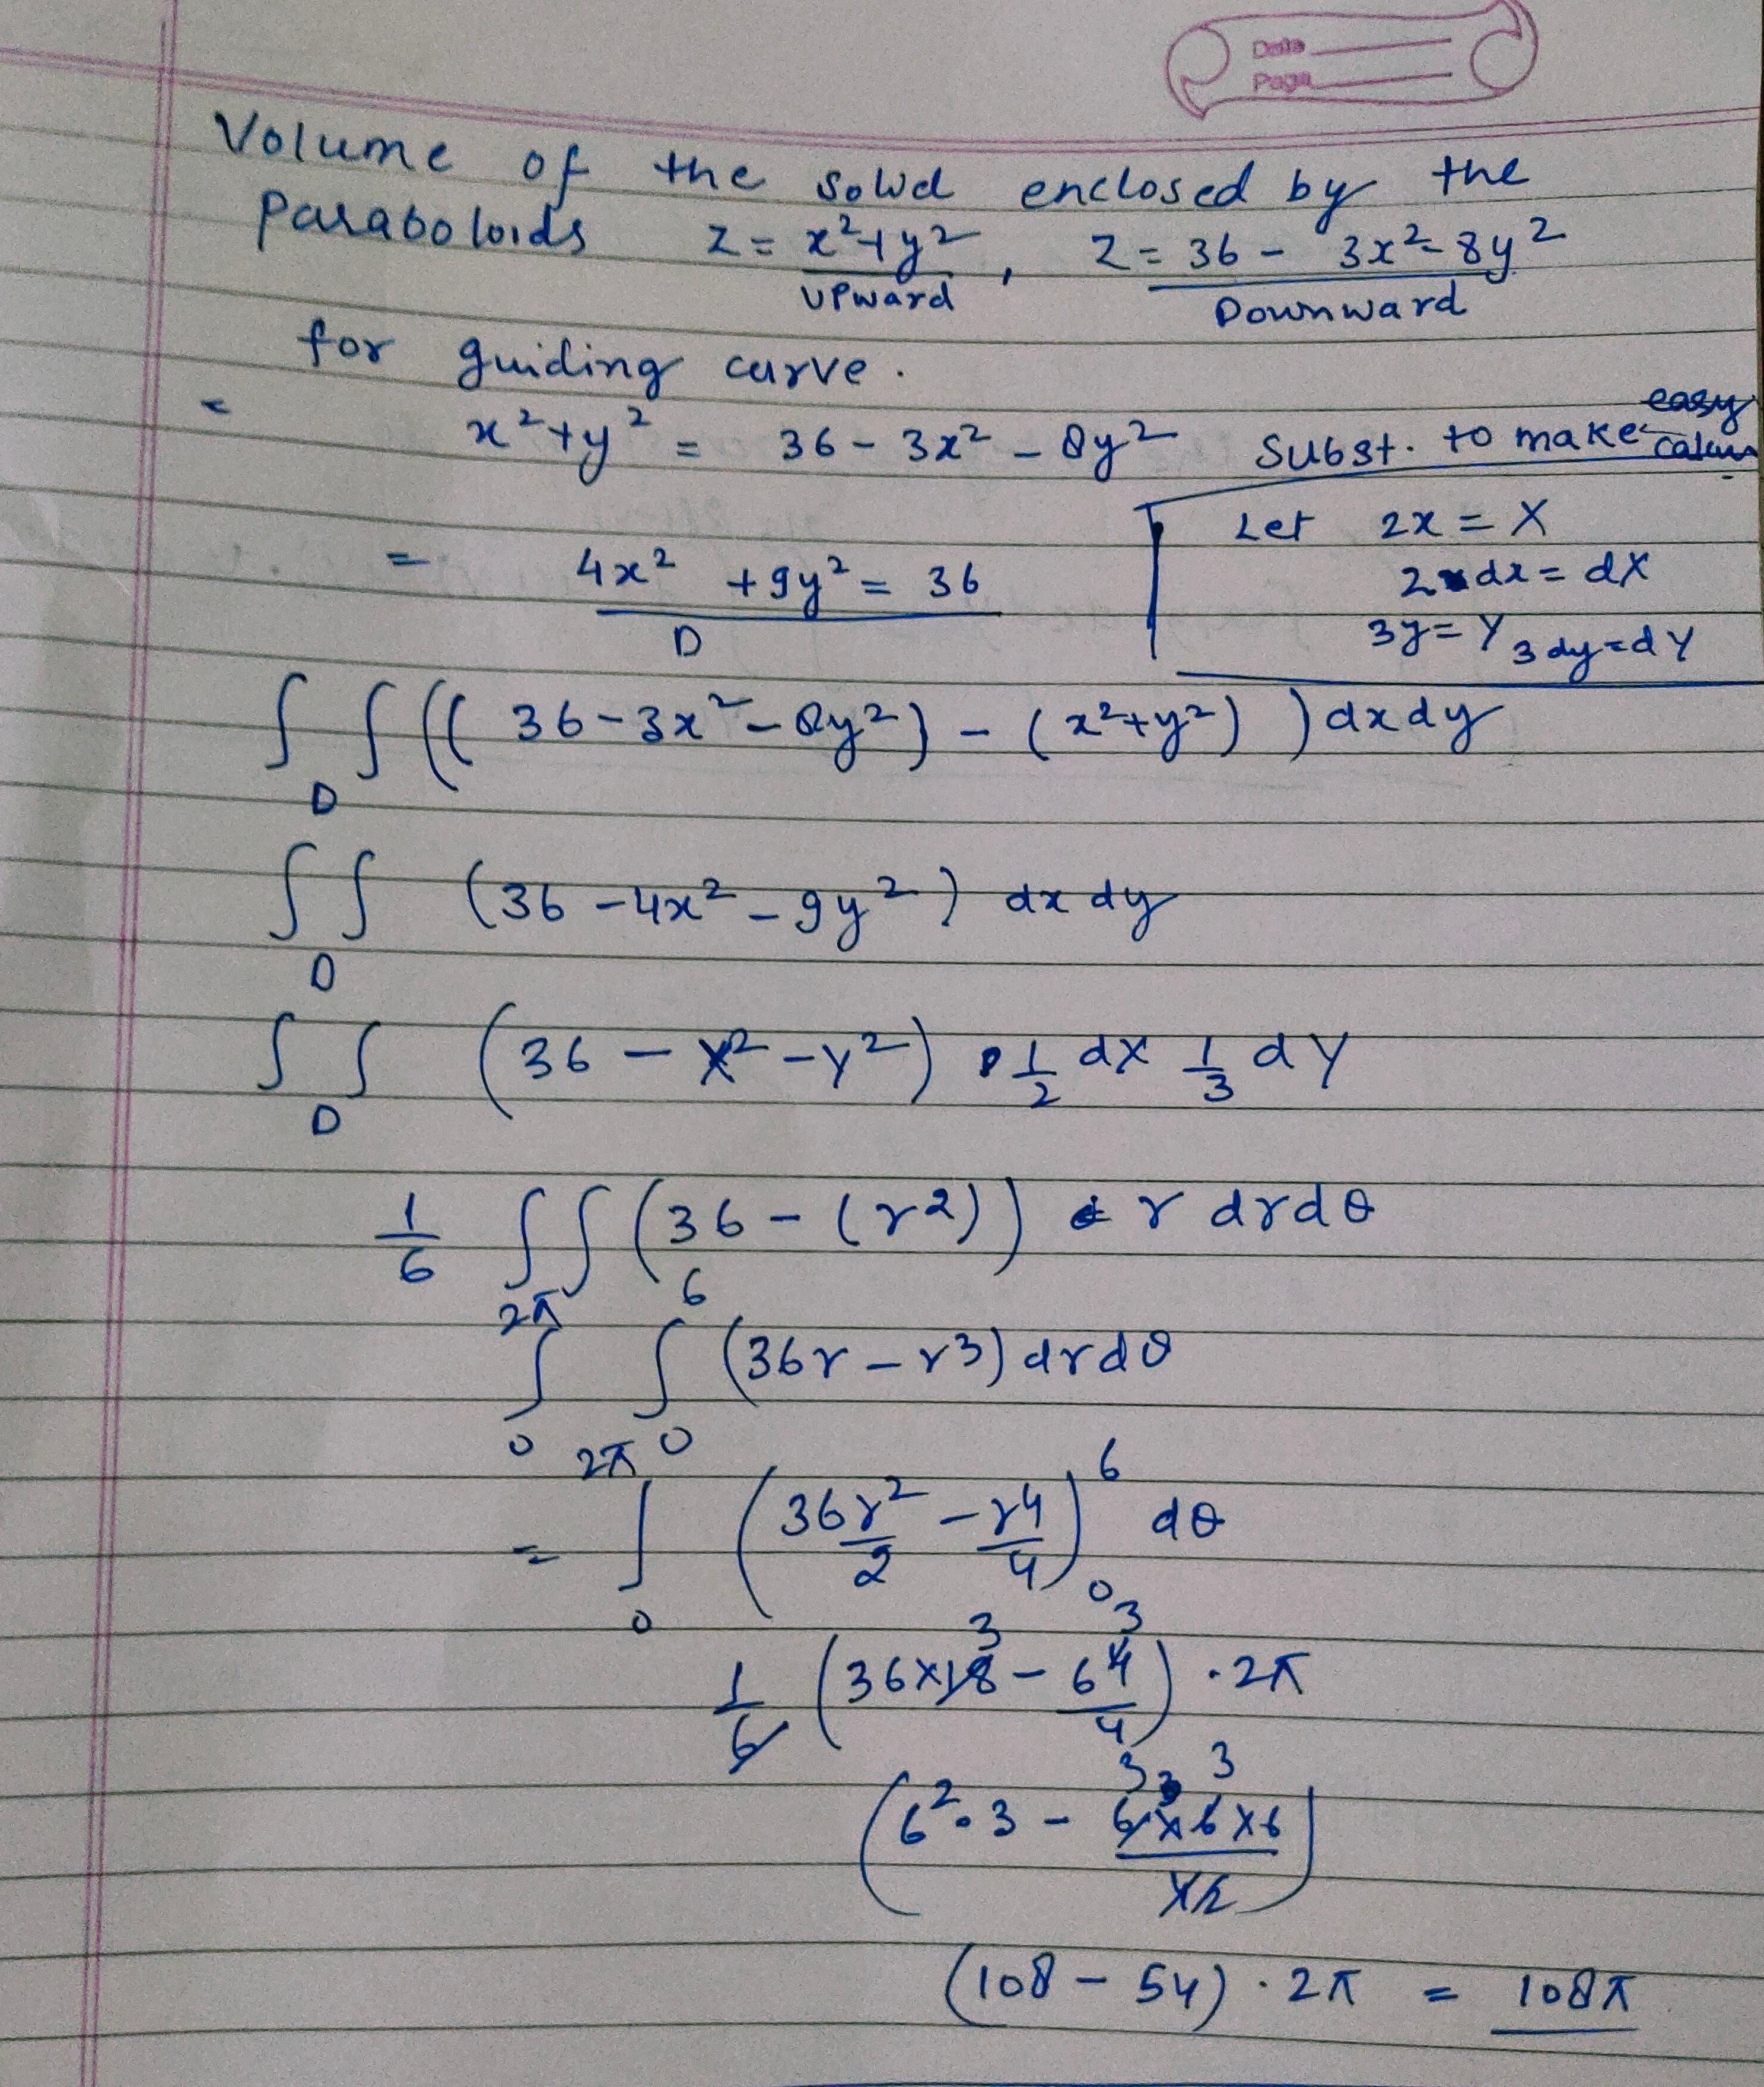 Date
Page
Volume of the solid enclosed by the
Paraboloids z = x²+y² , z = 36 - 3x²-8y²
UPward Downward
for guiding curve.
= x²+y² = 36 - 3x² - 8y² Subst. to make easy
Let 2x = X
= 4x² + 9y² = 36 2dx = dX
D 3y = Y 3dy = dY
∫ ∫ (( 36-3x²-8y²) - (x²+y²) ) dx dy
D
∫ ∫ (36 - 4x² - 9y²) dx dy
D
∫ ∫ (36 - X² - Y²) 1/2 dX 1/3 dY
D
1/6 ∫∫ (36 - (r²)) r dr dθ
2π 6
∫ ∫ (36r - r³) dr dθ
0 0
2π 6
= ∫ (36r²/2 - r⁴/4) dθ
0 0
3 3
1/6 (36×18 - 6⁴/4) · 2π
3 3 3
(6²·3 - 6×6×6/×2)
(108 - 54) · 2π = 108π